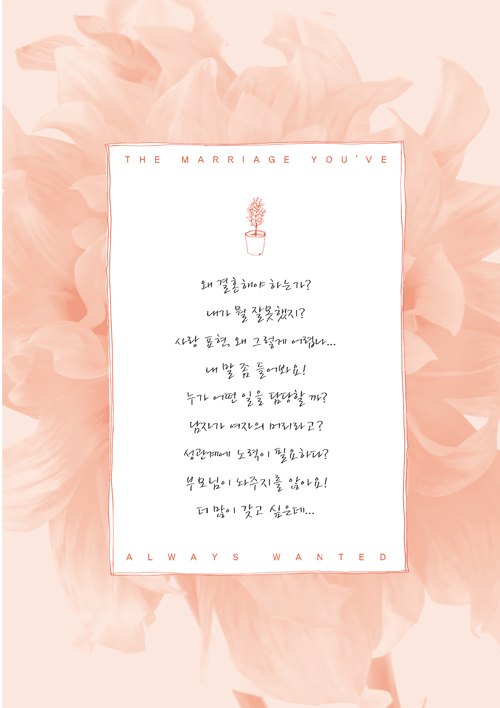 THE MARRIAGE YOU'VE
왜 결혼해야 하는가?
내가 뭘 잘못했지?
사랑 표현, 왜 그렇게 어렵나...
내 말 좀 들어봐요!
누가 어떤 일을 담당할까?
남자가 여자의 머리라고?
성관계에 노력이 필요하다?
부모님이 놔주지를 않아요!
더 많이 갖고 싶은데...
ALWAYS WANTED